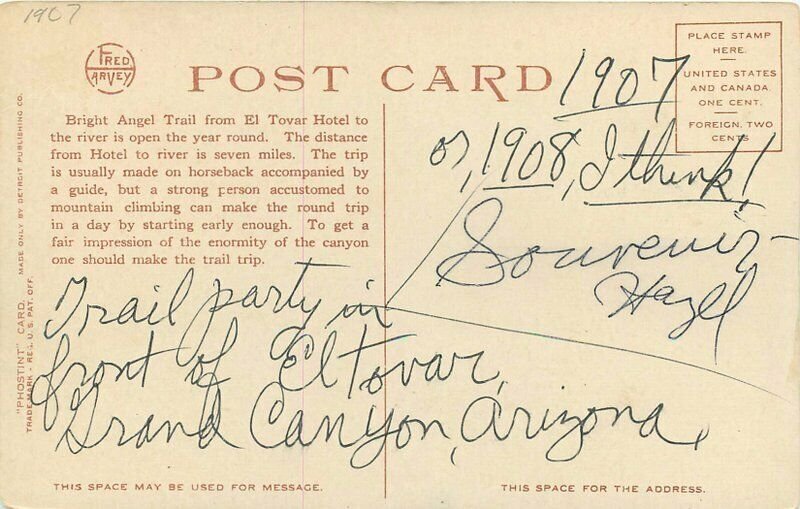 1907
FRED HARVEY
POST CARD
PLACE STAMP
HERE.
UNITED STATES
AND CANADA.
ONE CENT.
FOREIGN, TWO
CENTS
Bright Angel Trail from El Tovar Hotel to
the river is open the year round. The distance
from Hotel to river is seven miles. The trip
is usually made on horseback accompanied by
a guide, but a strong person accustomed to
mountain climbing can make the round trip
in a day by starting early enough. To get a
fair impression of the enormity of the canyon
one should make the trail trip.
1907
or, 1908, I think!
Souvenir
Hazel
Trail party in
front of El Tovar,
Grand Canyon, Arizona.
"PHOSTINT" CARD. MADE ONLY BY DETROIT PUBLISHING CO.
TRADE MARK - REG. U.S. PAT. OFF.
THIS SPACE MAY BE USED FOR MESSAGE.
THIS SPACE FOR THE ADDRESS.